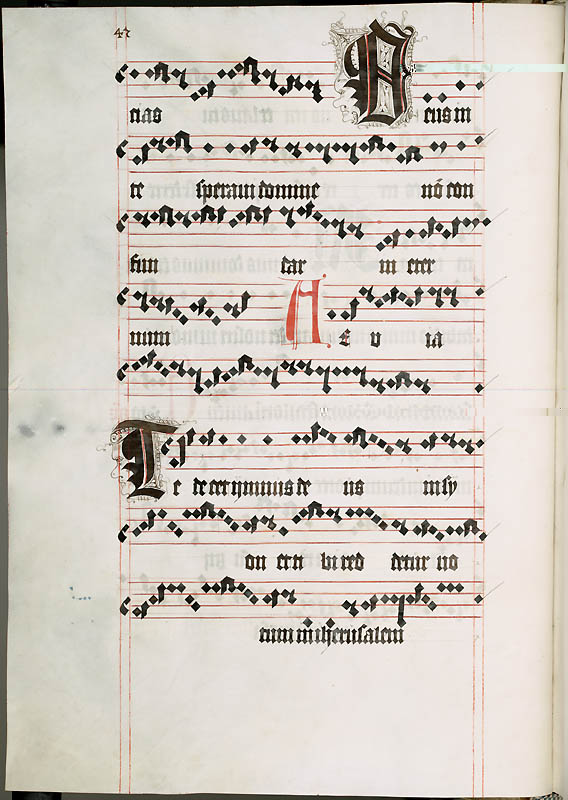 47
nias D eus in
te speraui domine nō con
fun dar in eter
num A E v ia
T e decet ymnus de us in sy
on et ti bi red detur uo
tum in iherusalem